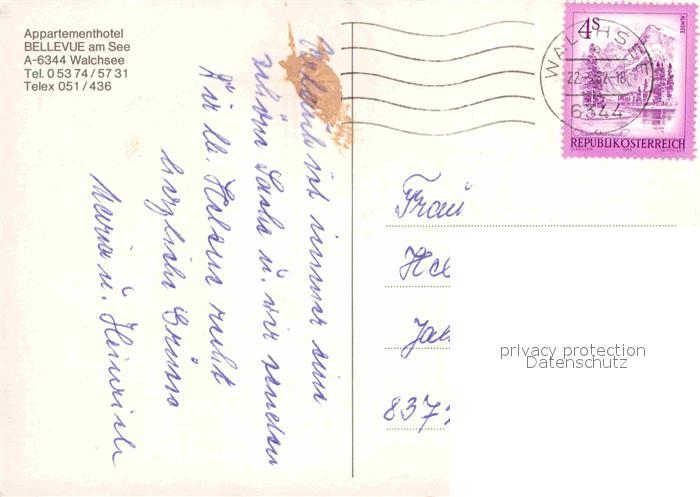 Appartementhotel
BELLEVUE am See
A-6344 Walchsee
Tel. 0 53 74 / 57 31
Telex 051 / 436
Urlaub ist immer eine
schöne Sache u. wir senden
Dir lb. Helene recht
herzliche Grüsse
Maria u. Heinrich
4S
ALMSEE
REPUBLIK ÖSTERREICH
WALCHSEE
6344
Frau
Hel
Jah
8372
privacy protection
Datenschutz